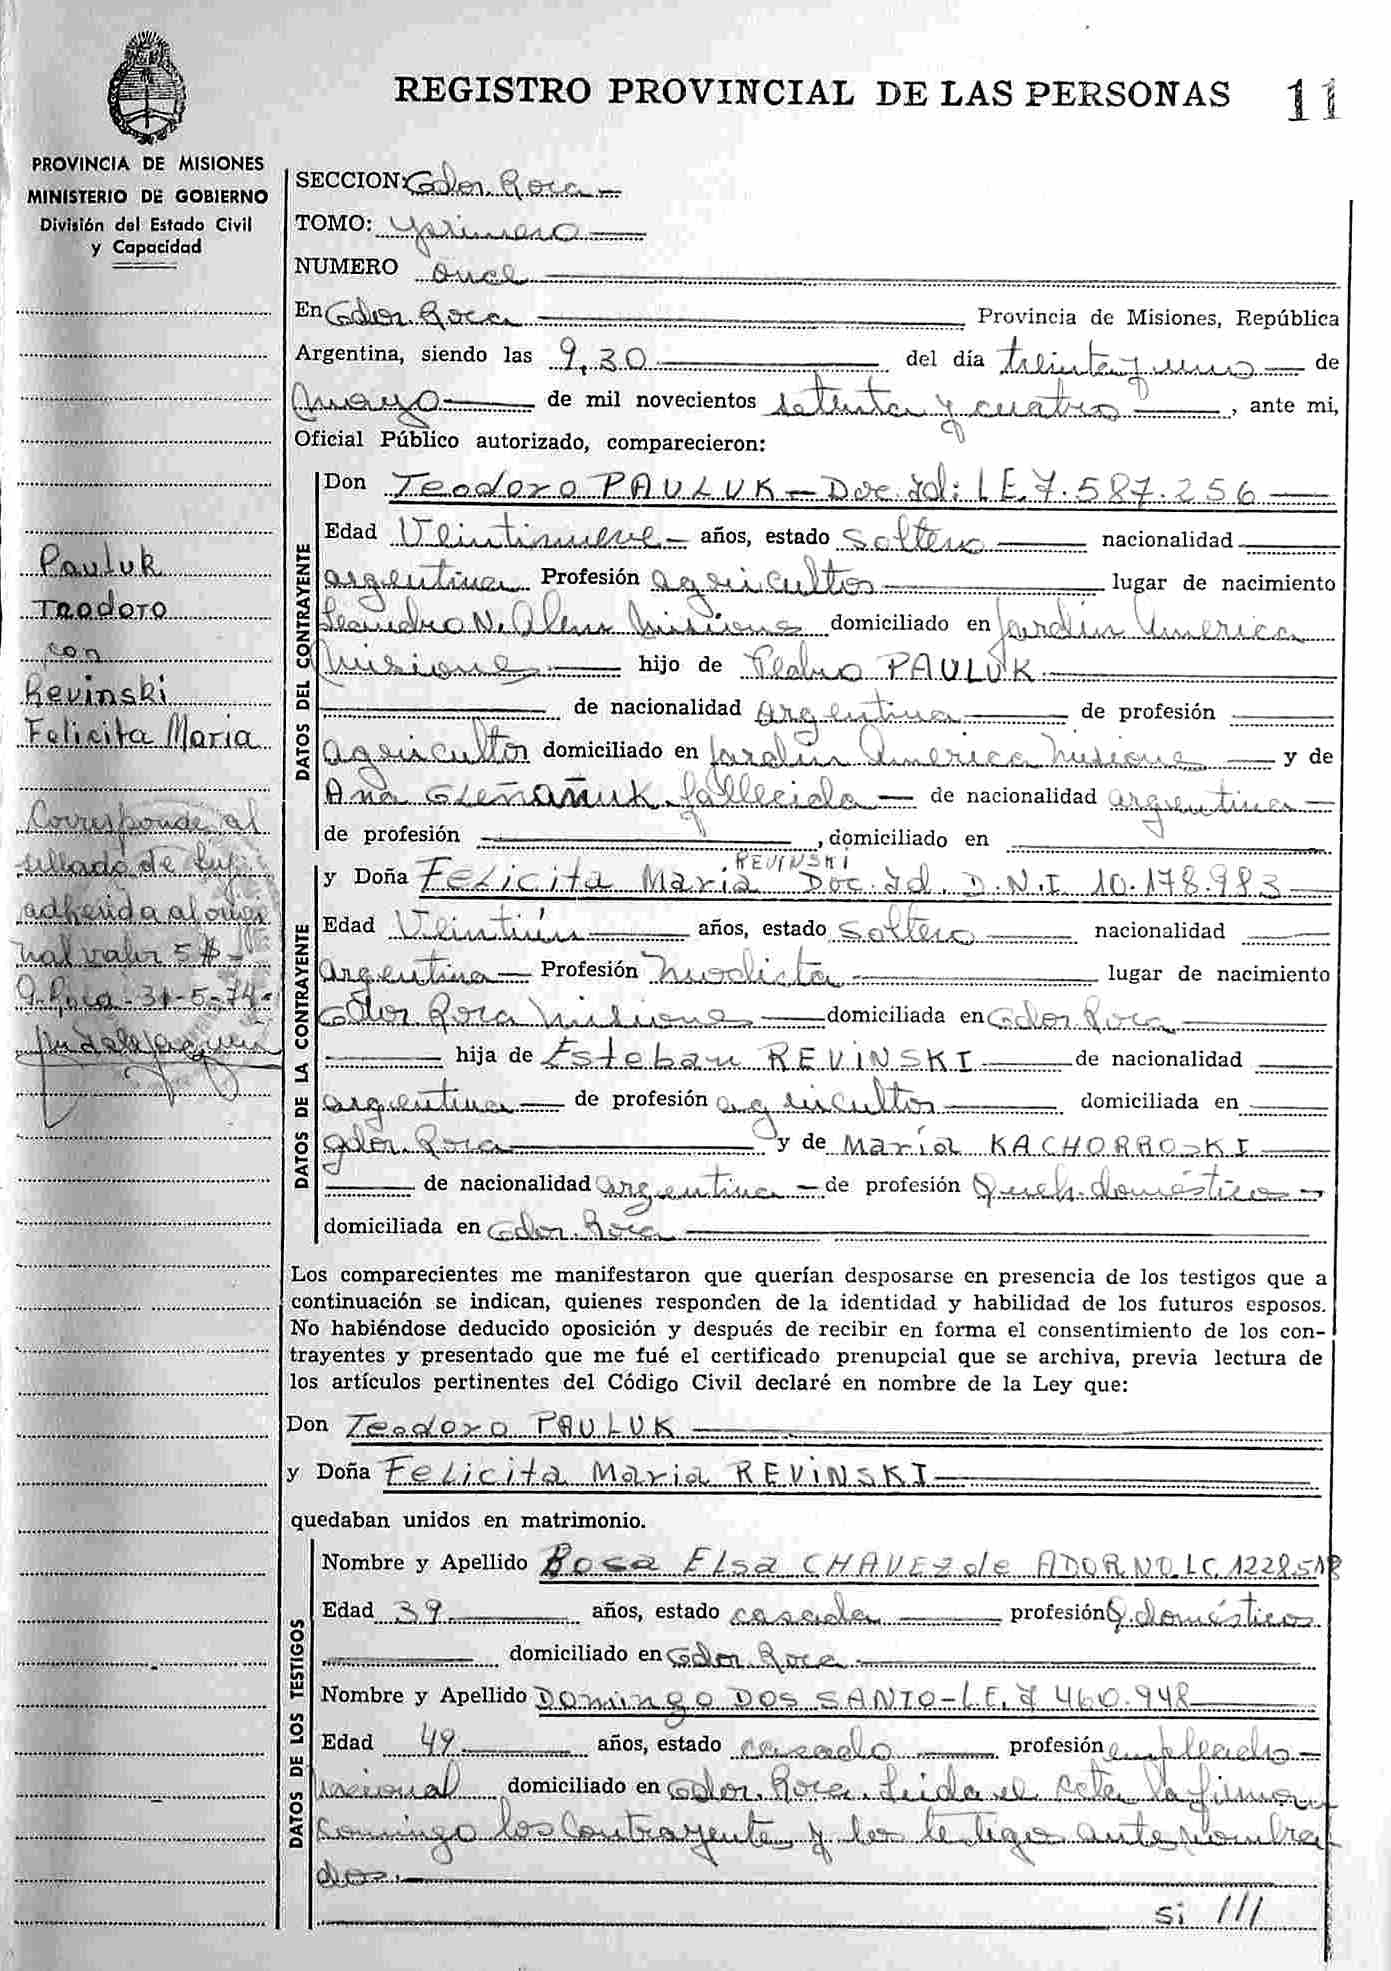 REGISTRO PROVINCIAL DE LAS PERSONAS 11
PROVINCIA DE MISIONES
MINISTERIO DE GOBIERNO
División del Estado Civil
y Capacidad
SECCION: Gdor. Roca
TOMO: primero
NUMERO once
En Gdor. Roca Provincia de Misiones, República
Argentina, siendo las 9,30 del día treinta y uno de
Mayo de mil novecientos setenta y cuatro, ante mi,
Oficial Público autorizado, comparecieron:
DATOS DEL CONTRAYENTE
Don Teodoro PAULUK - Doc. Id: L.E. 7.587.256
Edad Veintinueve años, estado Soltero nacionalidad
argentina Profesión agricultor lugar de nacimiento
Leandro N. Alem Misiones domiciliado en Jardín America
Misiones hijo de Pedro PAULUK
de nacionalidad argentina de profesión
agricultor domiciliado en Jardín America Misiones y de
Ana GLEÑAÑUK fallecida de nacionalidad argentina
de profesión , domiciliado en
DATOS DE LA CONTRAYENTE
REVINSKI
y Doña Felicita Maria Doc. Id. D.N.I. 10.178.983
Edad Veintiún años, estado Soltera nacionalidad
argentina Profesión Modista lugar de nacimiento
Gdor. Roca Misiones domiciliada en Gdor. Roca
hija de Esteban REVINSKI de nacionalidad
argentina de profesión agricultor domiciliada en
gdor. Roca y de Maria KACHORROSKI
de nacionalidad argentina de profesión Queh. domésticos
domiciliada en Gdor. Roca
Los comparecientes me manifestaron que querían desposarse en presencia de los testigos que a
continuación se indican, quienes responden de la identidad y habilidad de los futuros esposos.
No habiéndose deducido oposición y después de recibir en forma el consentimiento de los con-
trayentes y presentado que me fué el certificado prenupcial que se archiva, previa lectura de
los artículos pertinentes del Código Civil declaré en nombre de la Ley que:
Don Teodoro PAULUK
y Doña Felicita Maria REVINSKI
quedaban unidos en matrimonio.
DATOS DE LOS TESTIGOS
Nombre y Apellido Rosa Elsa CHAVEZ de ADORNO. LC
Edad 39 años, estado casada profesión Q. domésticos
domiciliado en Gdor. Roca
Nombre y Apellido Domingo DOS SANTO - L.E. 7 460.948
Edad 49 años, estado casado profesión empleado
nacional domiciliado en Gdor. Roca. Leida el acta la firman
conmigo los contrayente y los testigos antenombra
dos.
si ///
Pauluk
Teodoro
con
Revinski
Felicita Maria
Corresponde al
sellado de ley
adherida al origi
nal valor 5 $
G. Roca - 31-5-74